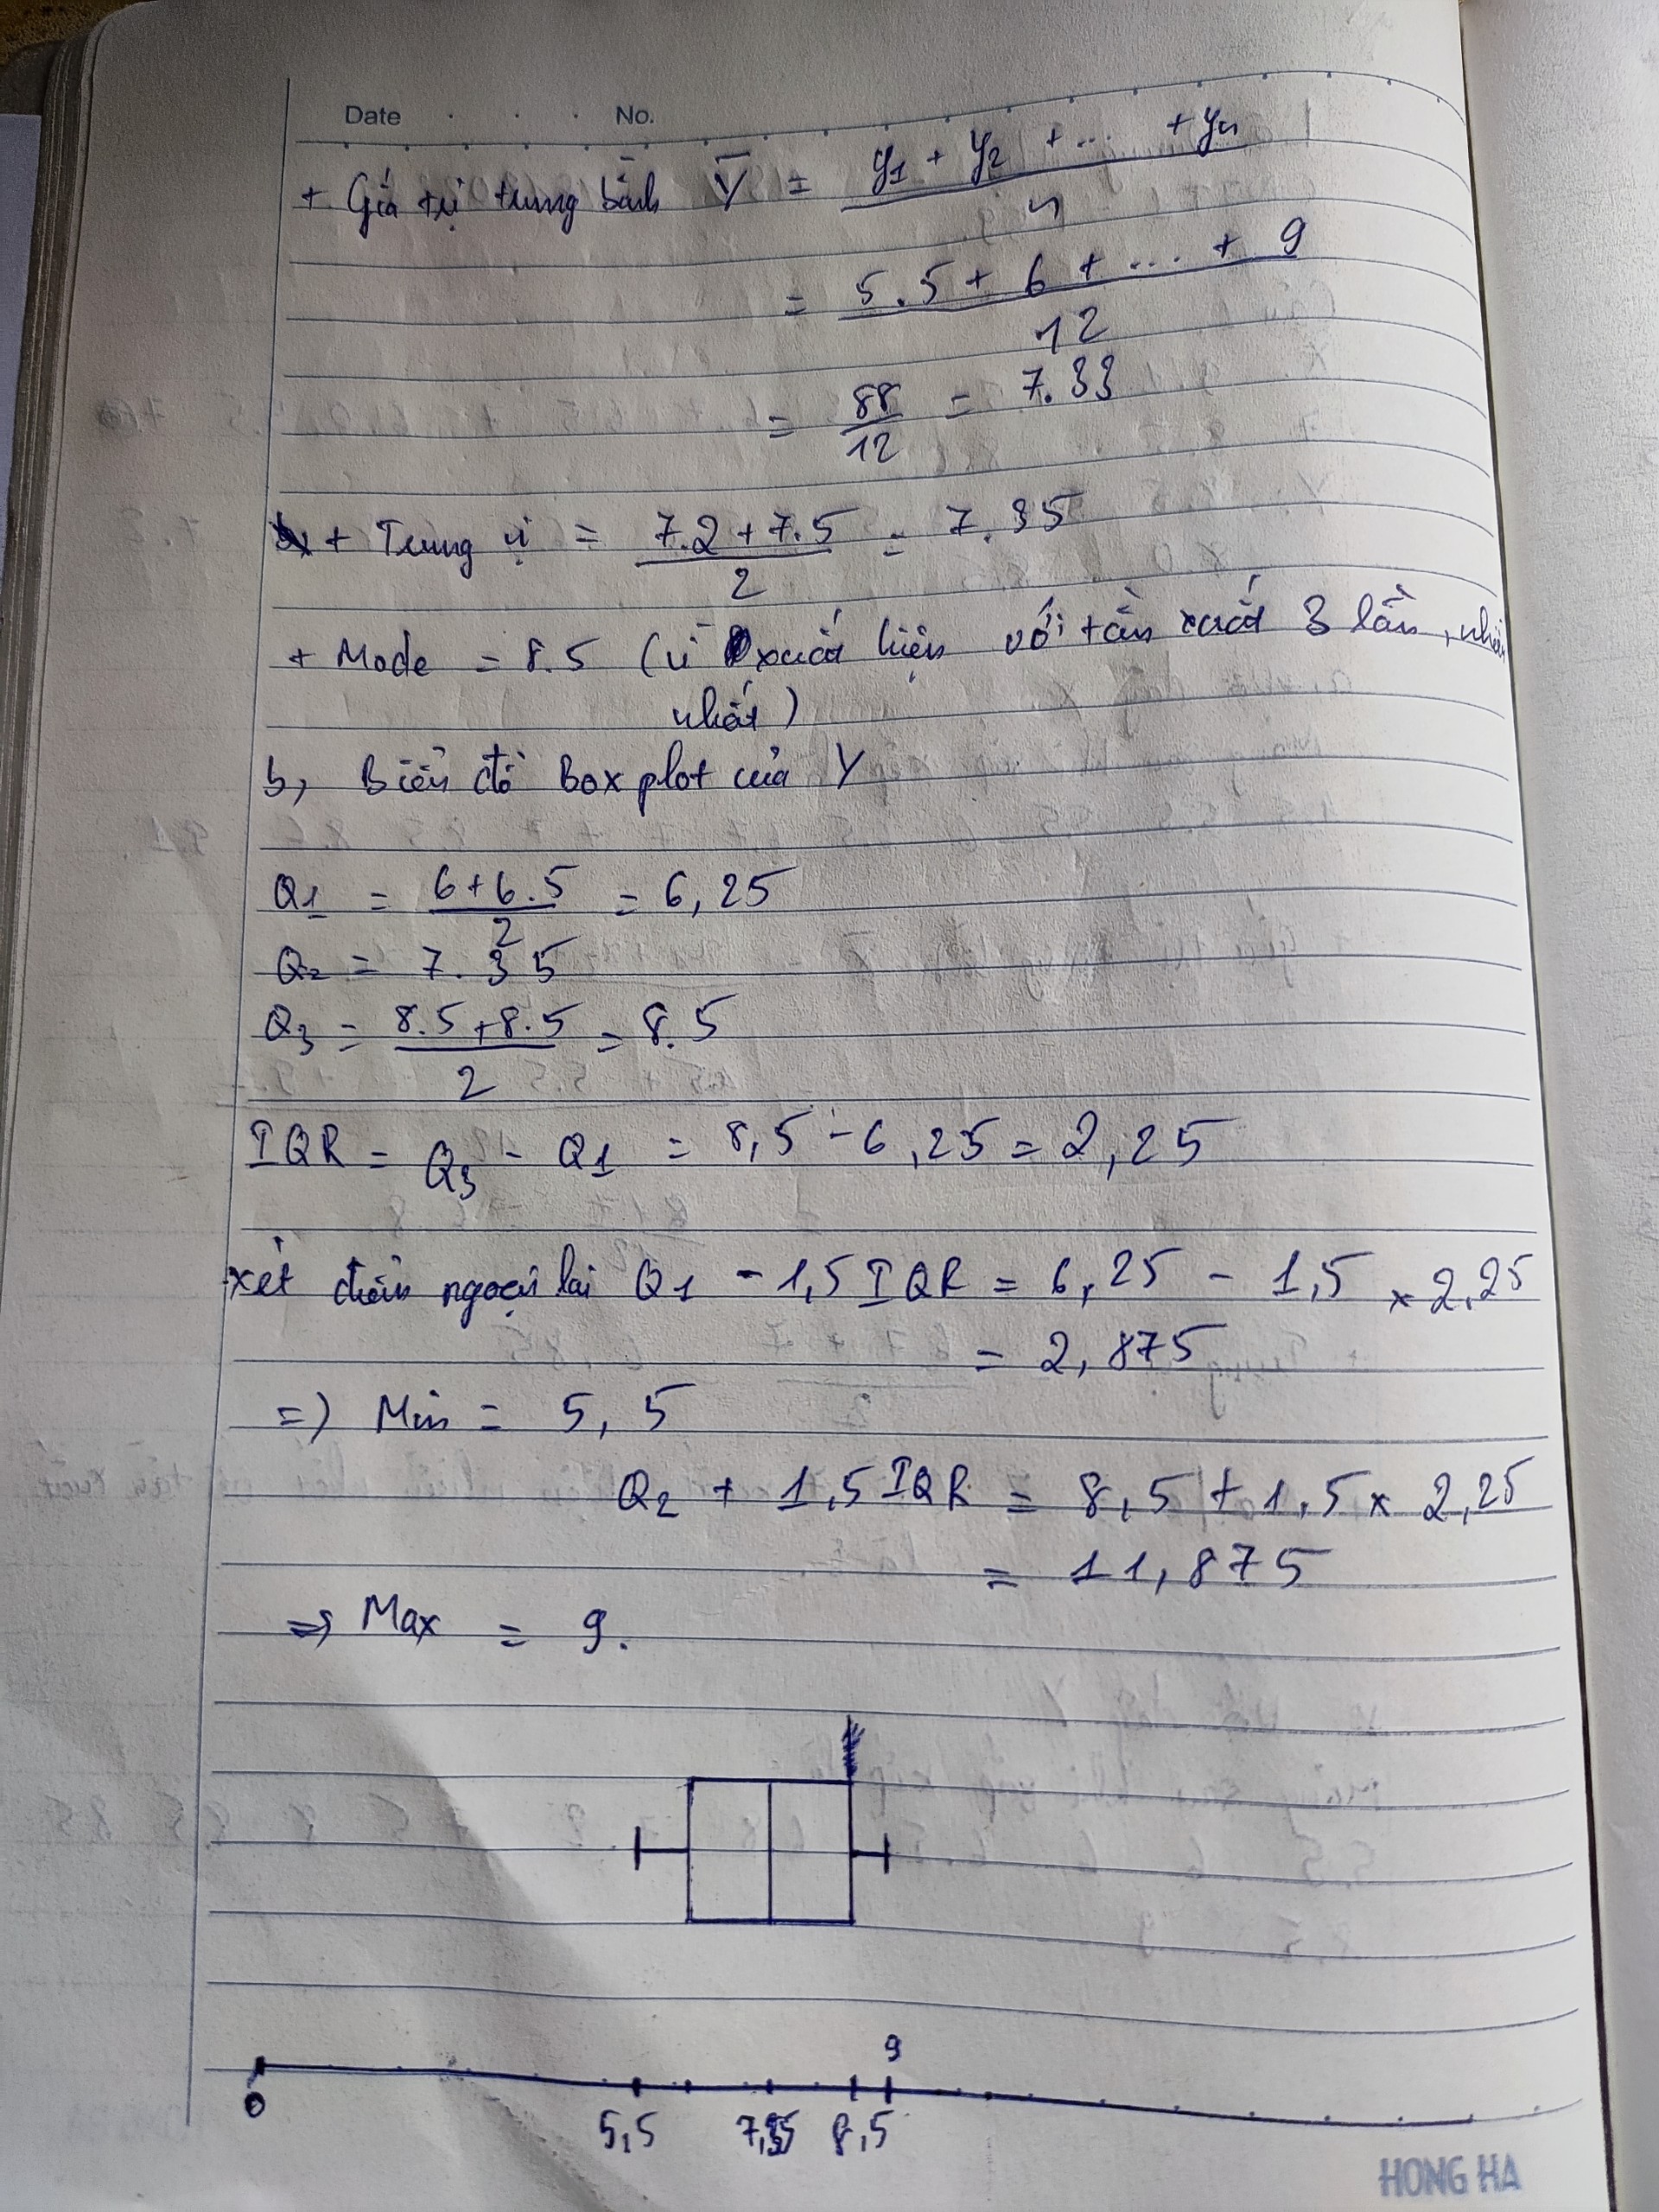 Date No.
+ Giá trị trung bình Y̅ = (y1 + y2 + ... + yn) / n
= (5.5 + 6 + ... + 9) / 12
= 88/12 = 7.33
+ Trung vị = (7.2 + 7.5) / 2 = 7.35
+ Mode = 8.5 (vì xuất hiện với tần xuất 3 lần, nhiều
nhất)
b, Biểu đồ Box plot của Y
Q1 = (6 + 6.5) / 2 = 6,25
Q2 = 7.35
Q3 = (8.5 + 8.5) / 2 = 8.5
IQR = Q3 - Q1 = 8,5 - 6,25 = 2,25
xét điểm ngoại lai Q1 - 1,5 IQR = 6,25 - 1,5 × 2,25
= 2,875
=) Min = 5,5
Q2 + 1,5 IQR = 8,5 + 1,5 × 2,25
= 11,875
=> Max = 9.
9
0 5,5 7,35 8,5
HONG HA